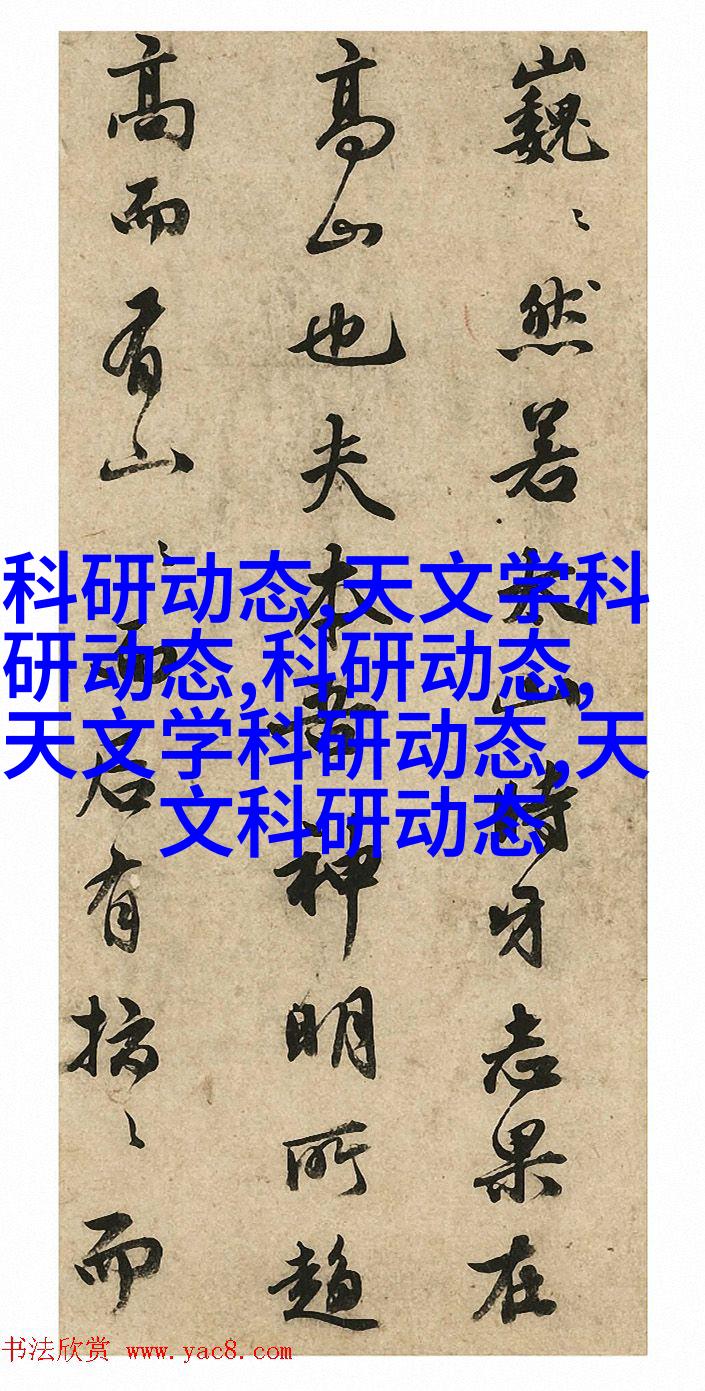 巍〻然若太山時牙志果在
高山也夫本吾神明所趨
高而有山〻而名有〻而
科研动态,天文学科
研动态,科研动态,
天文学科研动态,天
文科研动态
书法欣赏 www.yac8.com